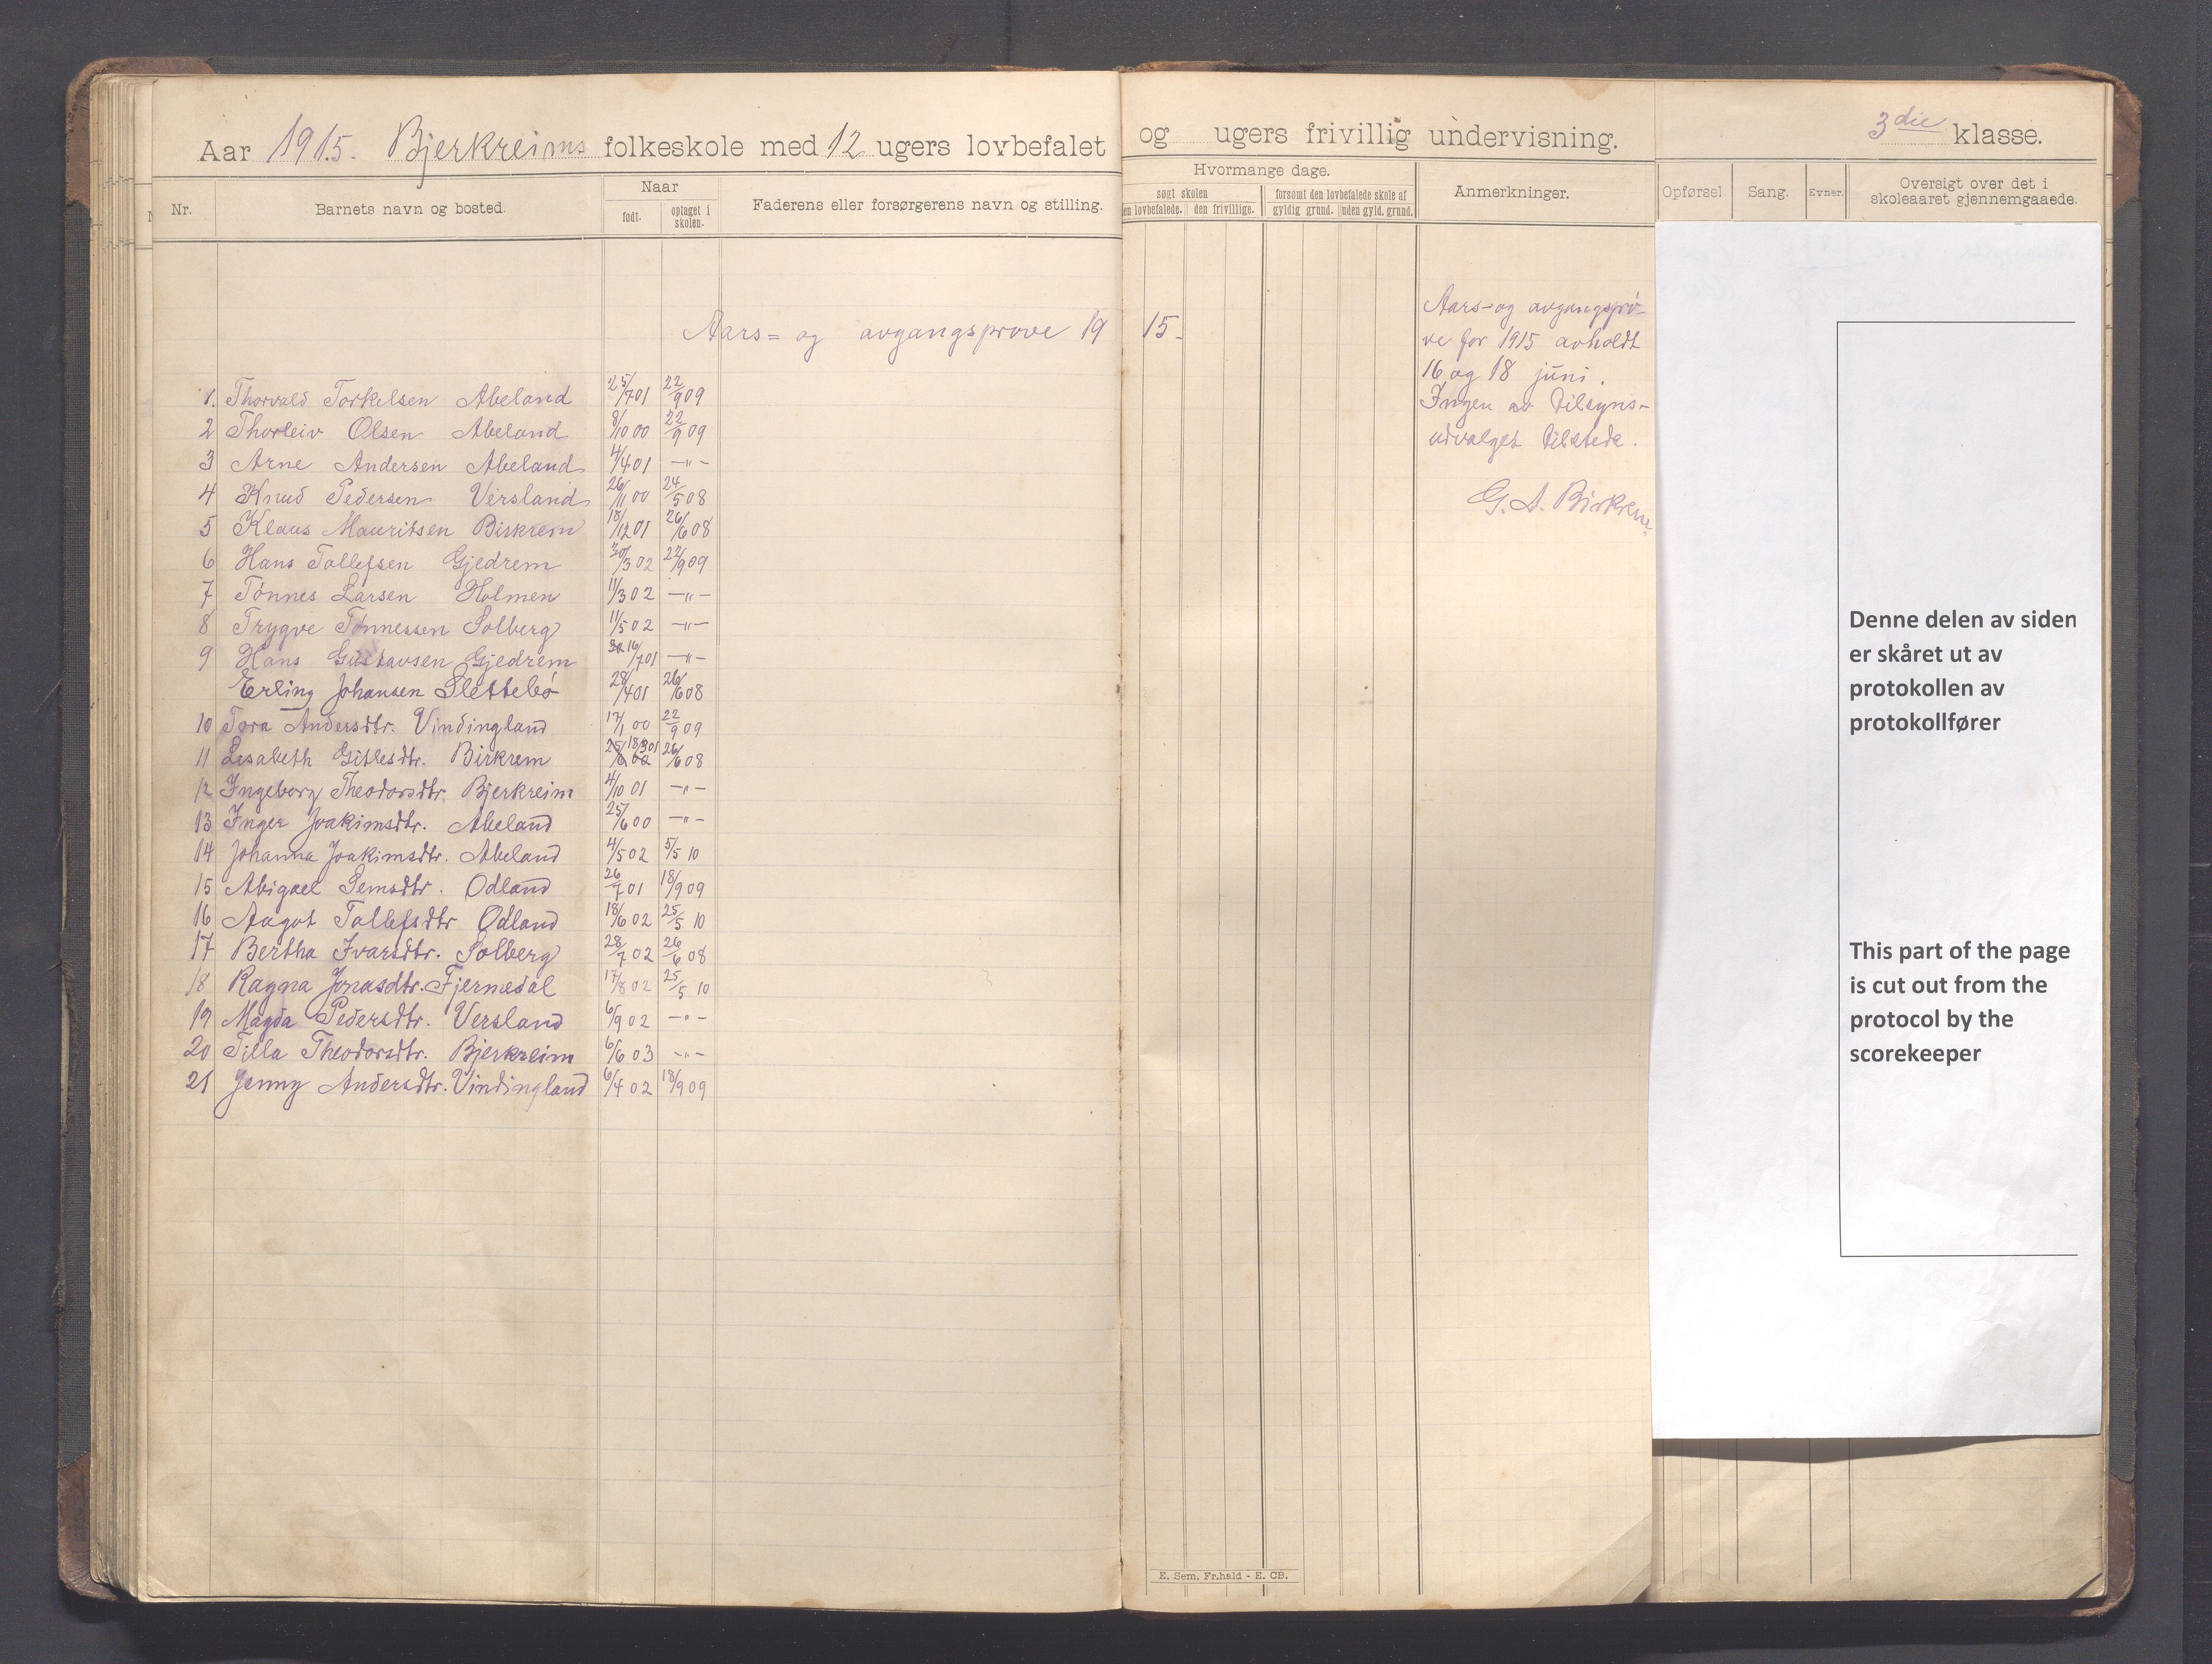 Aar 1915. Bjerkreims folkeskole med 12 ugers lovbefalet og ugers frivillig undervisning. 3die klasse.
Nr. Barnets navn og bosted. Naar født. optaget i skolen. Faderens eller forsørgerens navn og stilling.
Hvormange dage.
søgt skolen forsømt den lovbefalede skole af
en lovbefalede. den frivillige. gyldig grund. uden gyld. grund.
Anmerkninger. Opførsel Sang. Evner. Oversigt over det i skoleaaret gjennemgaaede.
Aars= og avgangsprøve 19 15.
1. Thorvald Torkelsen Abeland 25/7 01 22/9 09
2 Thorleiv Olsen Abeland 8/10 00 22/9 09
3 Arne Andersen Abeland 4/4 01 —"—
4 Knud Pedersen Versland 26/11 00 24/5 08
5 Klaus Mauritsen Birkrem 18/12 01 26/6 08
6 Hans Tollefsen Gjedrem 30/3 02 22/9 09
7 Tønnes Larsen Holmen 11/3 02 —"—
8 Trygve Tønnessen Solberg 11/5 02 —"—
9 Hans Gustavsen Gjedrem 16/7 01 —"—
Erling Johansen Slettebø 28/4 01 26/6 08
10 Tora Andersdtr. Vindingland 17/1 00 22/9 09
11 Lisabeth Gitlesdtr. Birkrem 18/3 01 26/6 08
12 Ingeborg Theodorsdtr. Bjerkreim 4/10 01 —"—
13 Inger Joakimsdtr. Abeland 25/6 00 —"—
14 Johanna Joakimsdtr. Abeland 4/5 02 5/5 10
15 Abigael Semsdtr. Odland 26/7 01 18/9 09
16 Aagot Tollefsdtr Odland 18/6 02 25/5 10
17 Bertha Ivarsdtr. Solberg 28/7 02 26/6 08
18 Ragna Jonasdtr. Fjermedal 17/8 02 25/5 10
19 Magda Pedersdtr. Versland 6/9 02 —"—
20 Tilla Theodorsdtr. Bjerkreim 6/6 03 —"—
21 Jenny Andersdtr. Vindingland 6/4 02 18/9 09
Aars- og avgangsprø-
ve for 1915 avholdt
16 og 18 juni.
Ingen av tilsyns-
udvalget tilstede.
G. A. Birkrem
Denne delen av siden
er skåret ut av
protokollen av
protokollfører
This part of the page
is cut out from the
protocol by the
scorekeeper
E. Sem, Fr.hald - E. CB.